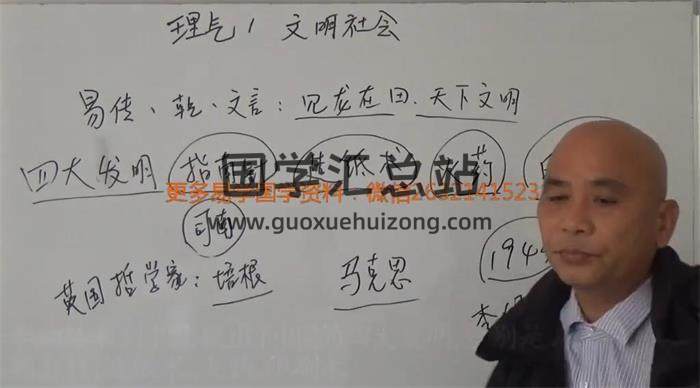 理气1 文明社会
易传、乾、文言:见龙在田.天下文明
四大发明 指南 纸术 药
国学汇总站
更多易学国学资料:微信
www.guoxuehuizong.com
司南
英国哲学家:培根 马克思 194
李